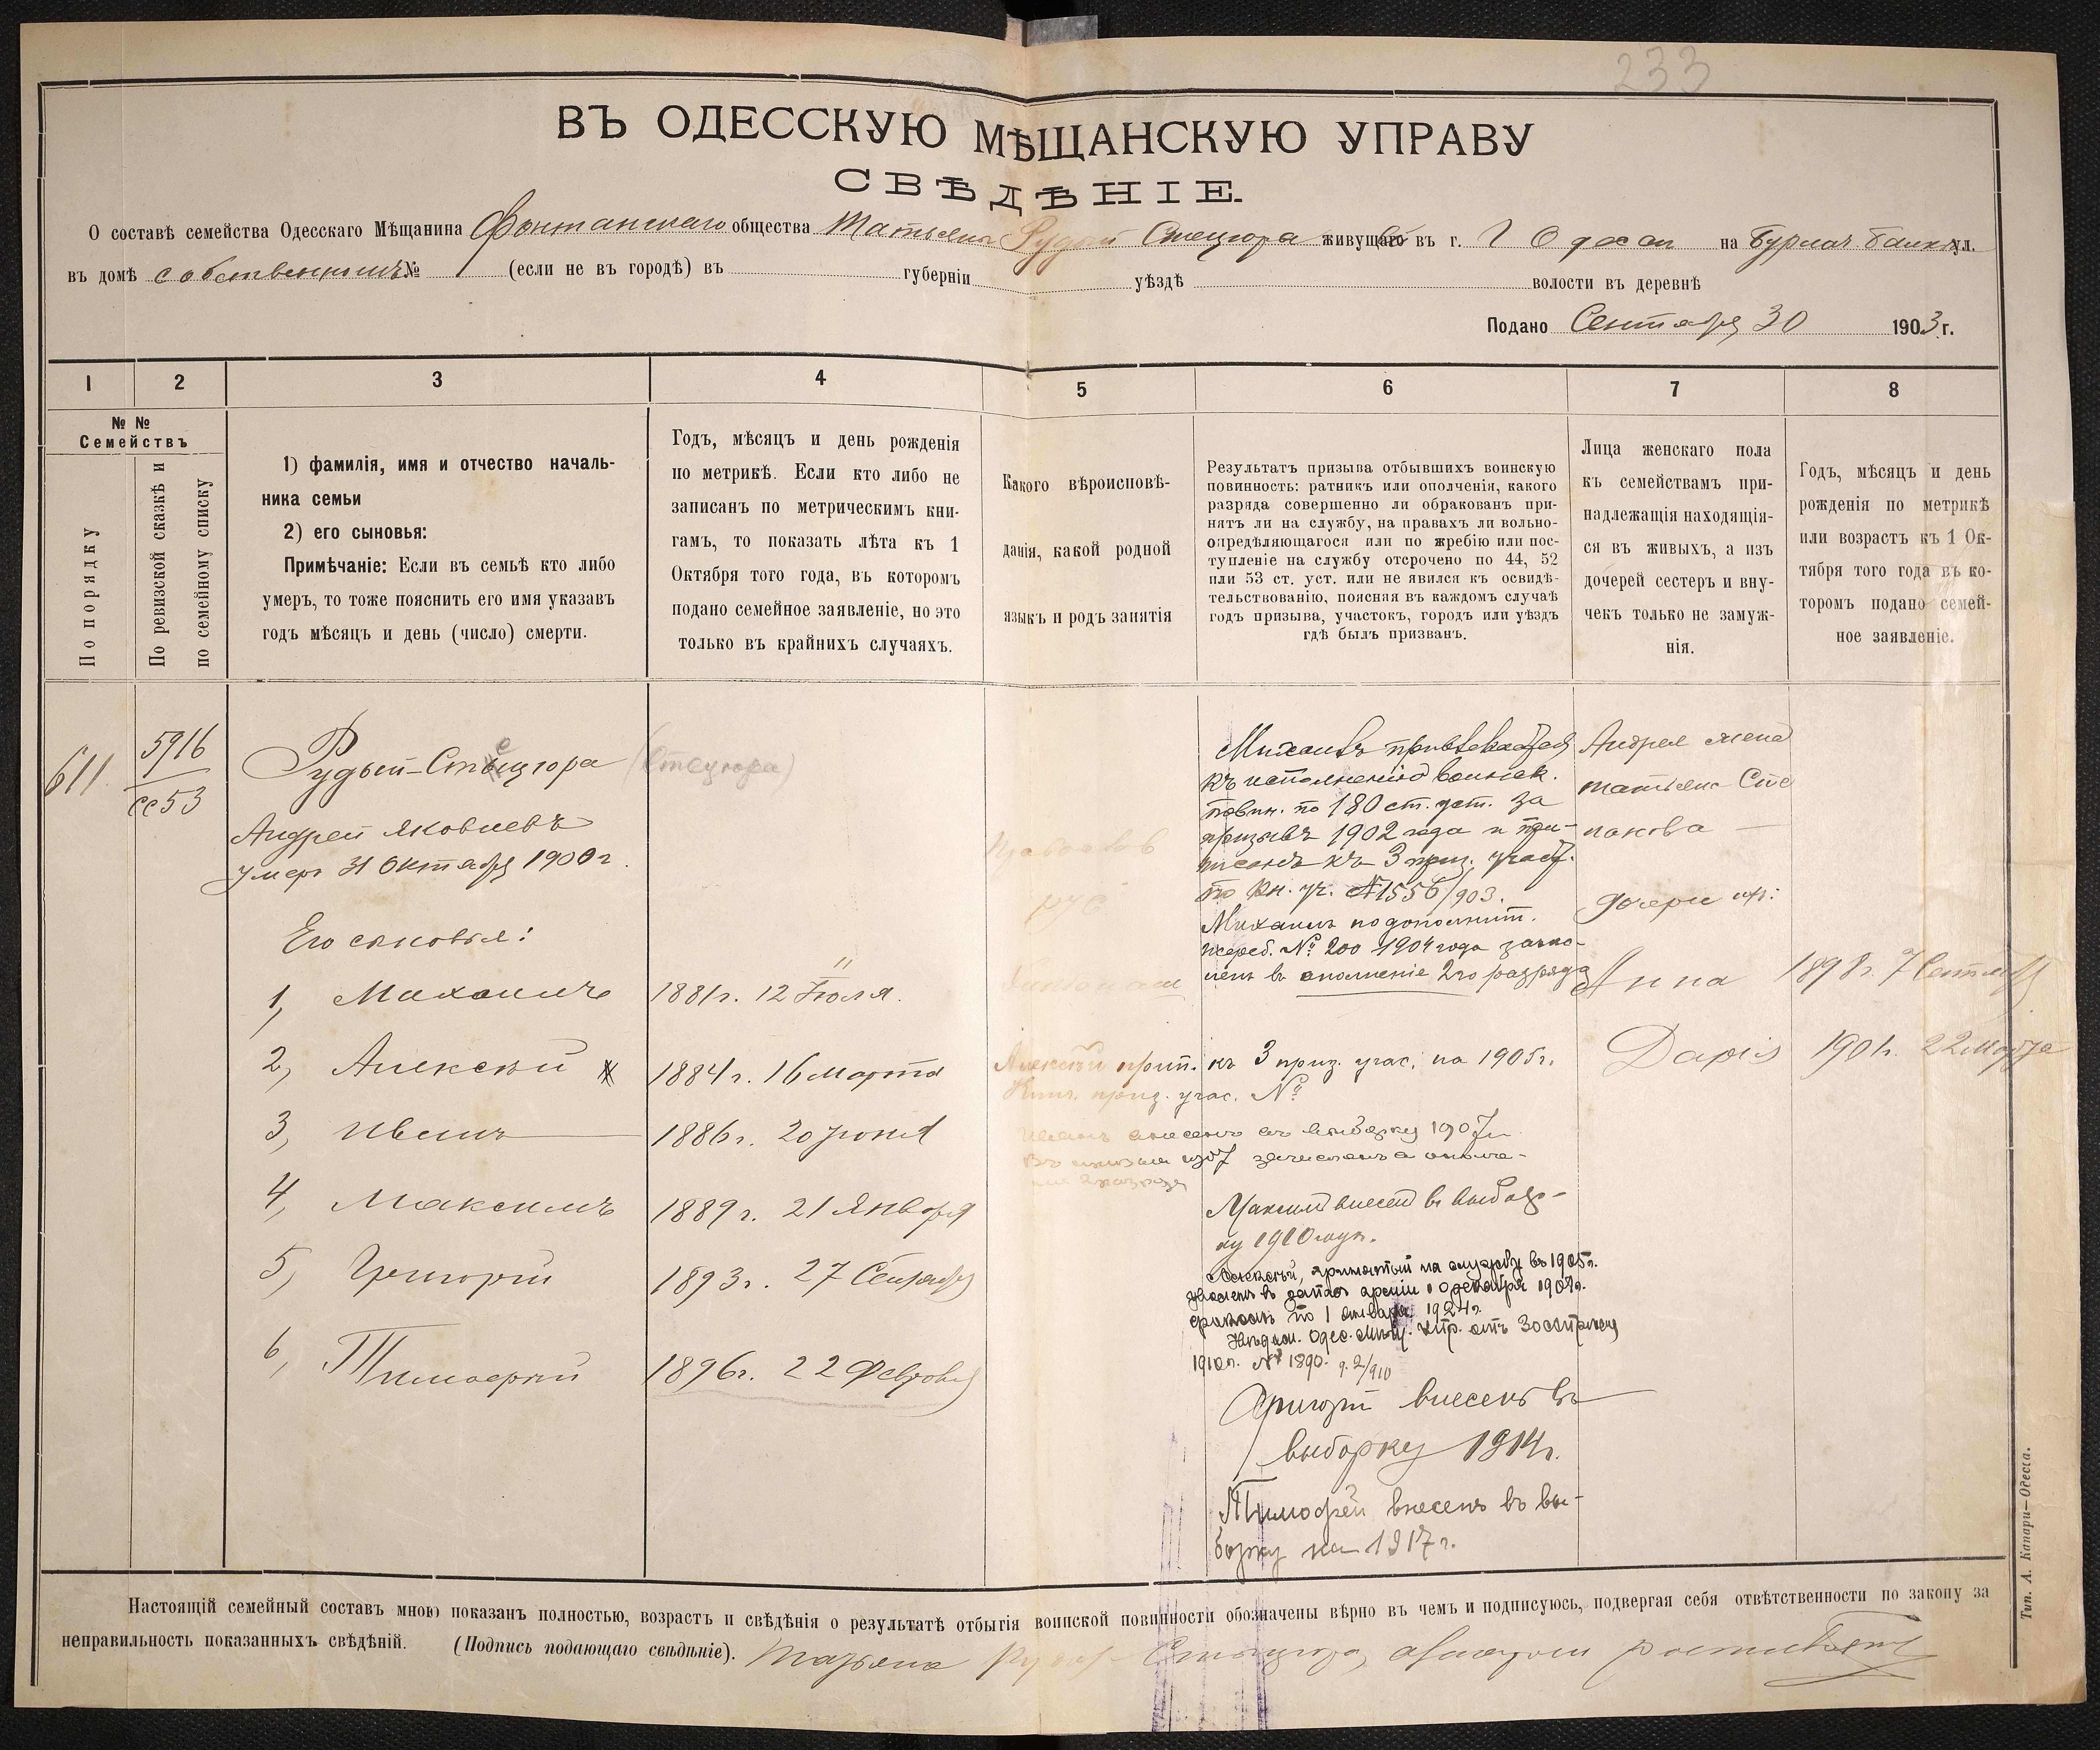 233
ВЪ ОДЕССКУЮ МѢЩАНСКУЮ УПРАВУ
СВѢДѢНІЕ.
О составѣ семейства Одесскаго Мѣщанина Фонтанскаго общества Татьяны Рудый Стецюра живущаго въ г. Г Одесси на Бурлач Балкѣ ул.
въ домѣ собственномъ № (если не въ городѣ) въ губерніи уѣздѣ волости въ деревнѣ
Подано Сентября 30 1903 г.
1 2 3 4 5 6 7 8
№ №
Семействъ
По порядку
По ревизской сказкѣ и
по семейному списку
1) фамилія, имя и отчество началь-
ника семьи
2) его сыновья:
Примѣчаніе: Если въ семьѣ кто либо
умеръ, то тоже пояснить его имя указавъ
годъ мѣсяцъ и день (число) смерти.
Годъ, мѣсяцъ и день рожденія
по метрикѣ. Если кто либо не
записанъ по метрическимъ кни-
гамъ, то показать лѣта къ 1
Октября того года, въ которомъ
подано семейное заявленіе, но это
только въ крайнихъ случаяхъ.
Какого вѣроисповѣ-
данія, какой родной
языкъ и родъ занятія
Результатъ призыва отбывшихъ воинскую
повинность: ратникъ или ополченія, какого
разряда совершенно ли обракованъ при-
нятъ ли на службу, на правахъ ли вольно-
опредѣляющагося или по жребію или пос-
тупленіе на службу отсрочено по 44, 52
или 53 ст. уст. или не явился къ освидѣ-
тельствованію, поясняя въ каждомъ случаѣ
годъ призыва, участокъ, городъ или уѣздъ
гдѣ былъ призванъ.
Лица женскаго пола
къ семействамъ при-
надлежащія находящія-
ся въ живыхъ, а изъ
дочерей сестеръ и вну-
чекъ только не замуж-
нія.
Годъ, мѣсяцъ и день
рожденія по метрикѣ
или возрастъ къ 1 Ок-
тября того года въ ко-
торомъ подано семей-
ное заявленіе.
611.
5916
сс53
Рудый-Стецюра (Стецюра)
Андрей Яковлевъ
умеръ 31 Октября 1900 г.
Его сыновья:
1, Михаилъ 1881 г. 12 Іюля.
11
2, Алексѣй 1884 г. 16 Марта
3, Иванъ 1886 г. 20 Іюня
4, Максимъ 1889 г. 21 Января
5, Григорій 1893 г. 27 Сентября
6, Тимофей 1896 г. 22 Февраля
Православ
рус
Михаилъ привлекается
къ исполненію воинск.
повин. по 180 ст. уст. за
призывъ 1902 года и при-
писанъ къ 3 приз. участ.
по кн. уч. № 1556/903.
Михаилъ по дополнит.
жереб. № 200 1904 года зачис-
ленъ въ ополченіе 2го разряда
Алексѣй прип. къ 3 приз. учас. на 1905 г.
Книг. приз. учас. №
Иванъ внесенъ въ выборку 1907 г.
Въ призывъ 1907 зачисленъ въ ополче-
ніе 2 разряда
Максимъ внесенъ въ выбор-
ку 1910 году.
Алексѣй, принятый на службу въ 1905 г.
уволенъ въ запасъ арміи 10 декабря 1909 г.
срокомъ по 1 января 1924 г.
Увѣдом. Одес. Мѣщ. Упр. отъ 30 сентября
1910 г. № 1890. 9.2/910
Григорій внесенъ въ
выборку 1914 г.
Тимофей внесенъ въ вы-
борку на 1917 г.
Андрея жена
Татьяна Сте
панова
дочери их:
Анна 1898 г. 7 Сентября
Дарія 1901 г. 22 Марта
Настоящій семейный составъ мною показанъ полностью, возрастъ и свѣдѣнія о результатѣ отбытія воинской повинности обозначены вѣрно въ чемъ и подписуюсь, подвергая себя отвѣтственности по закону за
неправильность показанныхъ свѣдѣній. (Подпись подающаго свѣдѣніе). Татьяна Рудая-Стецюра,
Тип. А. Капари—Одесса.